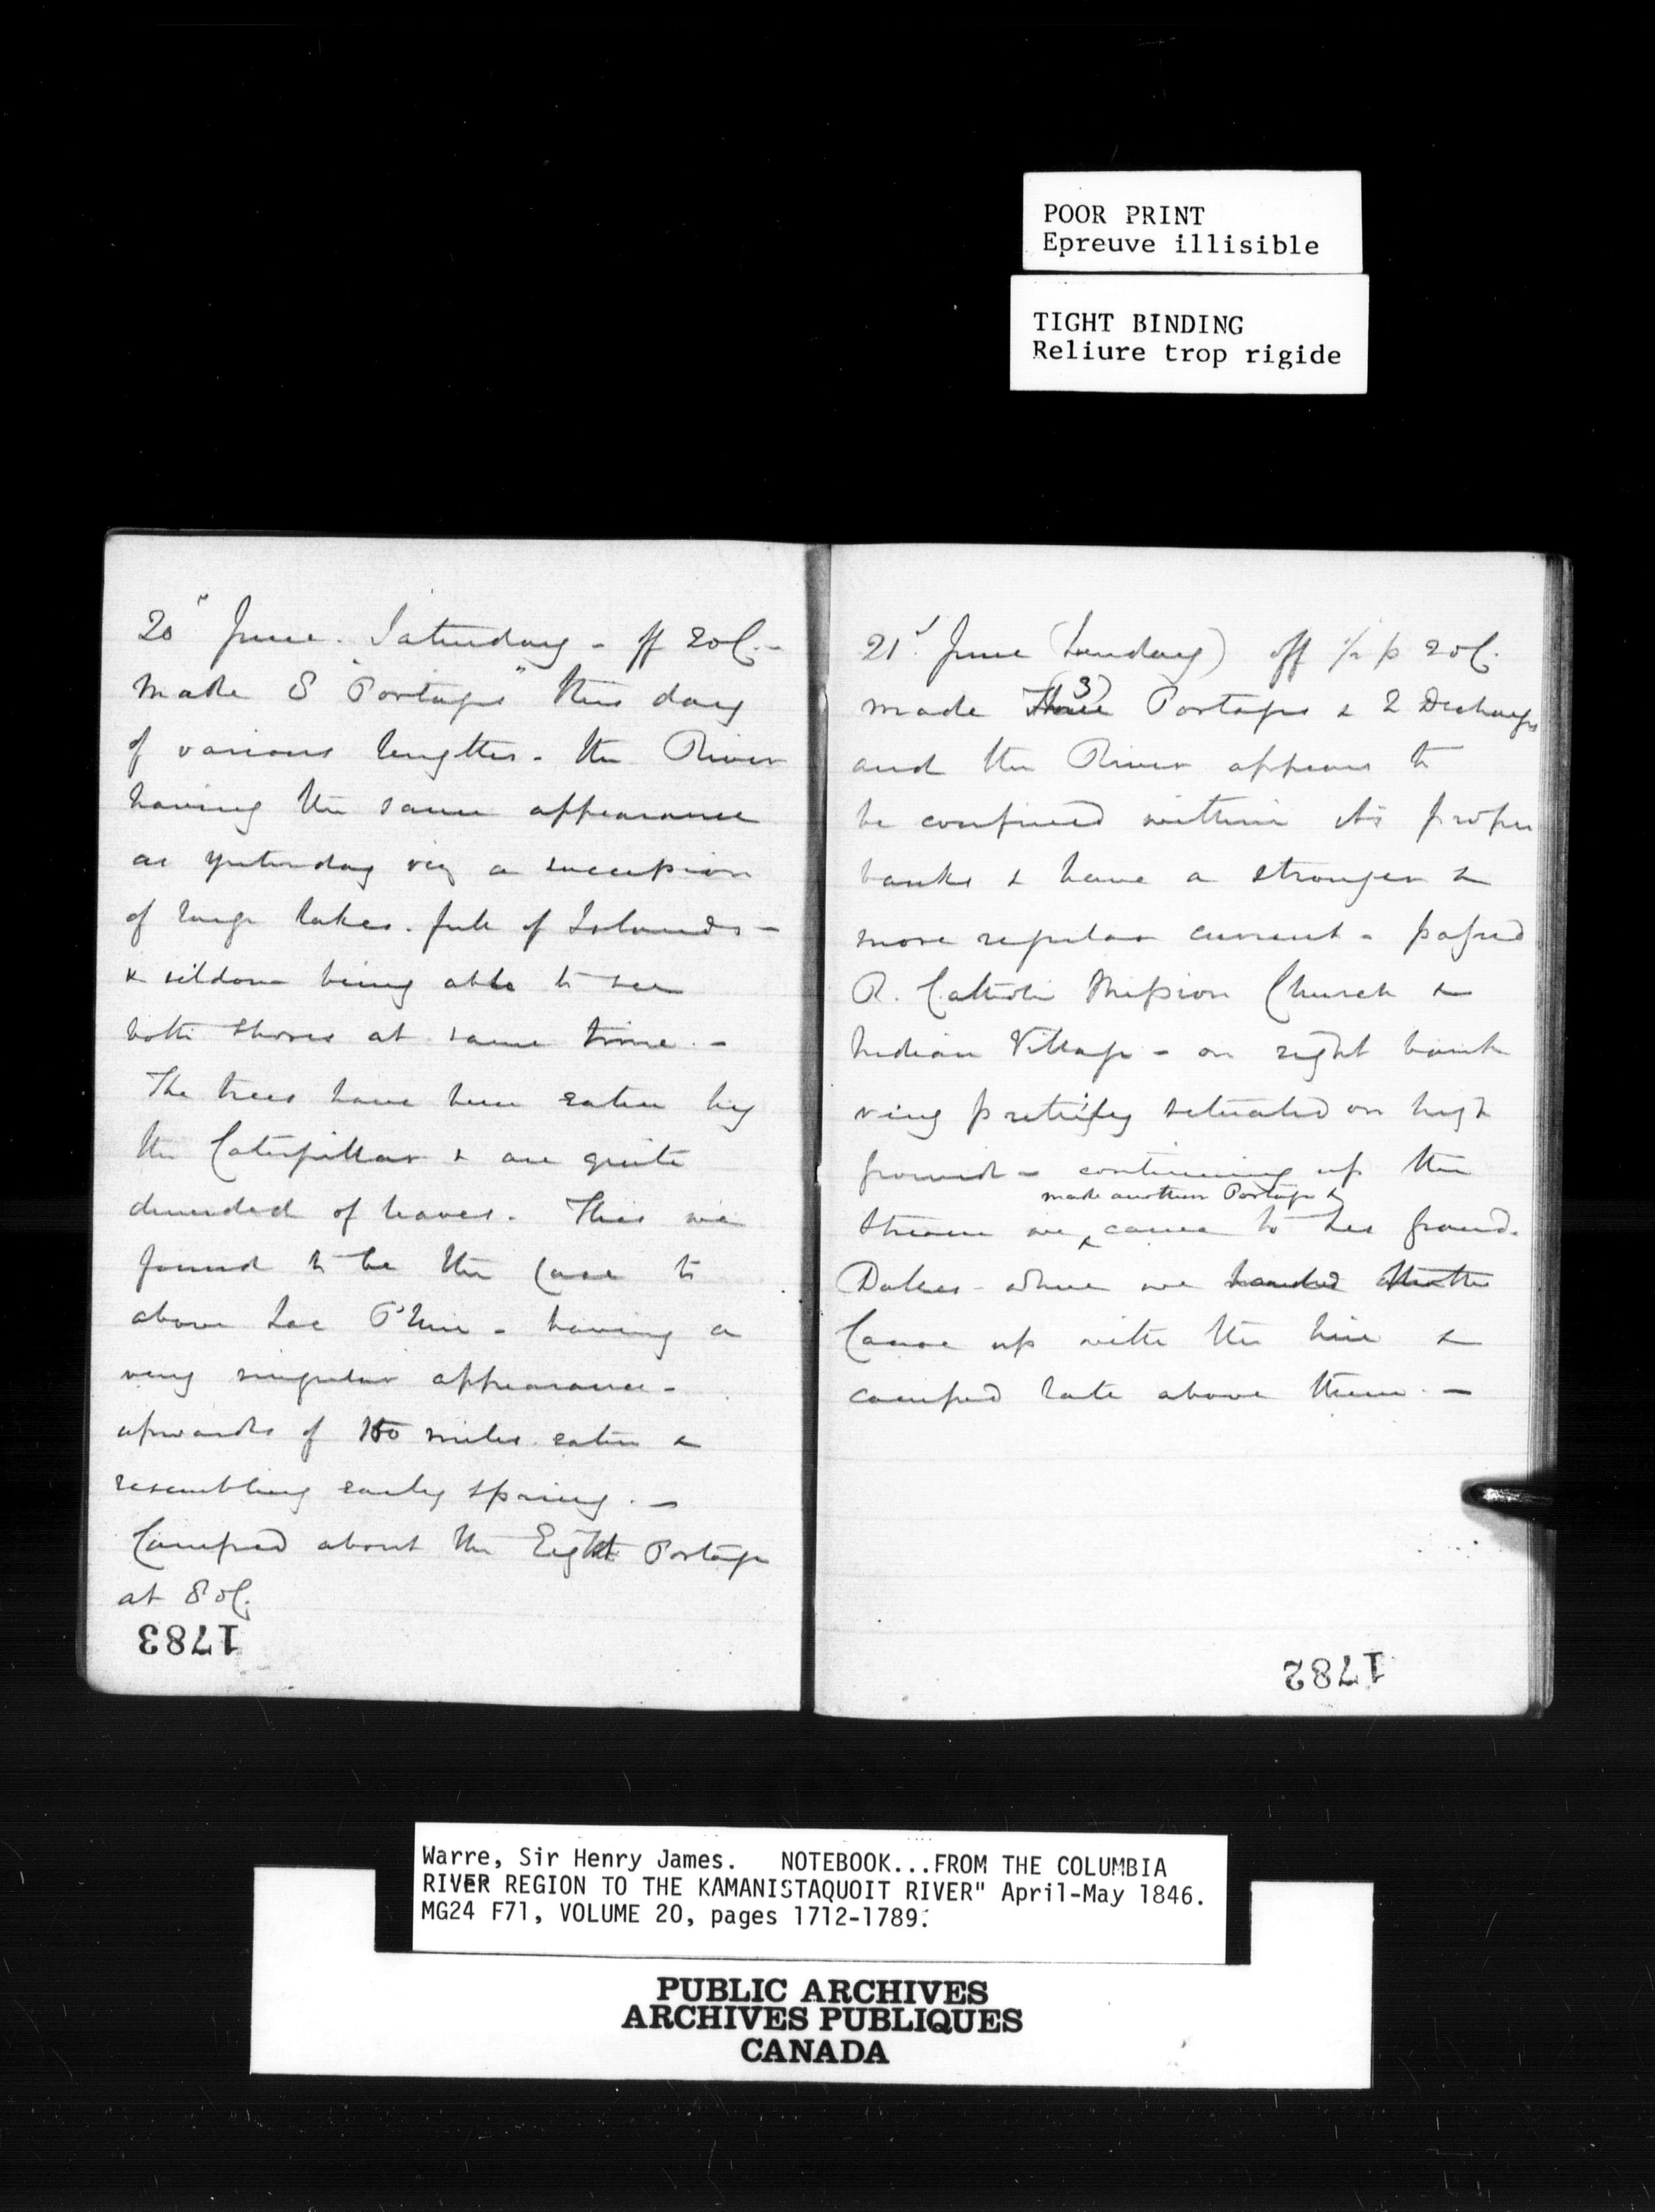 POOR PRINT
Epreuve illisible
TIGHT BINDING
Reliure trop rigide
20th June. Saturday - off 2oC. -
Made 8 "Portages" this day
of various lengths. the River
having the same appearance
as yesterday viz a succession
of large lakes. full of Islands -
& seldom being able to see
both shores at same time. -
The trees have been eaten by
the Caterpillar & are quite
denuded of leaves. This we
found to be the case to
above Lac Pluie - having a
very singular appearance -
upwards of 150 miles eaten &
resembling early spring. -
Camped about the Eight Portage
at 8 oC.
1783
21st June (Sunday) off 1/2 p 2oC.
made Three (3) Portages & 2 Decharges
and the River appears to
be confined within its proper
banks & have a stronger &
more regular current - passed
R. Catholic Mission Church &
Indian Village - on right bank
very prettily situated on high
ground - continuing up the
made another Portage &
stream we came to Les grand.
Dalles - where we handed the
Canoe up with the line &
camped late above them. -
1782
Warre, Sir Henry James. NOTEBOOK...FROM THE COLUMBIA
RIVER REGION TO THE KAMANISTAQUOIT RIVER" April-May 1846.
MG24 F71, VOLUME 20, pages 1712-1789.
PUBLIC ARCHIVES
ARCHIVES PUBLIQUES
CANADA